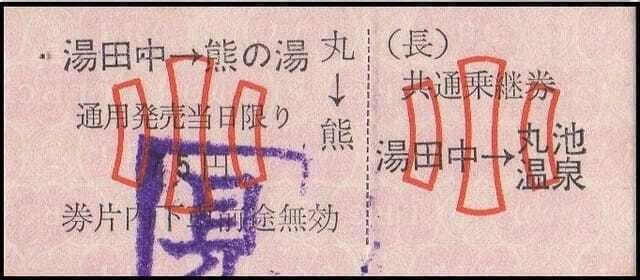 湯田中→熊の湯
通用発売当日限り
5円
券片内下車前途無効
丸↓熊
(長)
共通乗継券
湯田中→丸池温泉
小
小